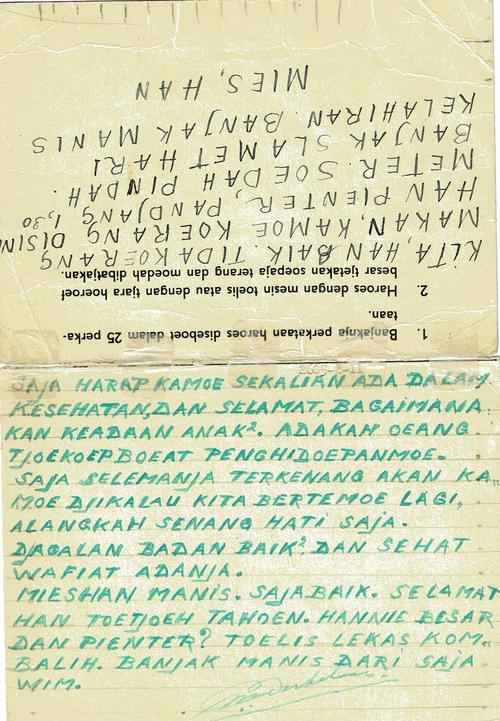 1. Banjaknja perkataan haroes diseboet dalam 25 perka-
taan.
2. Haroes dengan mesin toelis atau dengan tjara hoeroef
besar tjetakan soepaja terang dan moedah dibatjakan.
KITA, HAN BAIK. TIDAK KOERANG
MAKAN, KAMOE KOERANG DISINI
HAN PIENTER, PANDJANG 1,30
METER. SOEDAH PINDAH.
BANJAK SLAMET HARI
KELAHIRAN. BANJAK MANIS
MIES, HAN
SAJA HARAP KAMOE SEKALIAN ADA DALAM
KESEHATAN, DAN SELAMAT, BAGAIMANA
KAN KEADAAN ANAK². ADAKAH OEANG
TJOEKOEP BOEAT PENGHIDOEPANMOE.
SAJA SELEMANJA TERKENANG AKAN KA-
MOE DJIKALAU KITA BERTEMOE LAGI,
ALANGKAH SENANG HATI SAJA.
DJAGALAN BADAN BAIK² DAN SEHAT
WAFIAT ADANJA.
MIESHAN MANIS. SAJA BAIK. SELAMAT
HAN TOETJOEH TAHOEN. HANNIE BESAR
DAN PIENTER? TOELIS LEKAS KOM-
BALIH. BANJAK MANIS DARI SAJA
WIM.